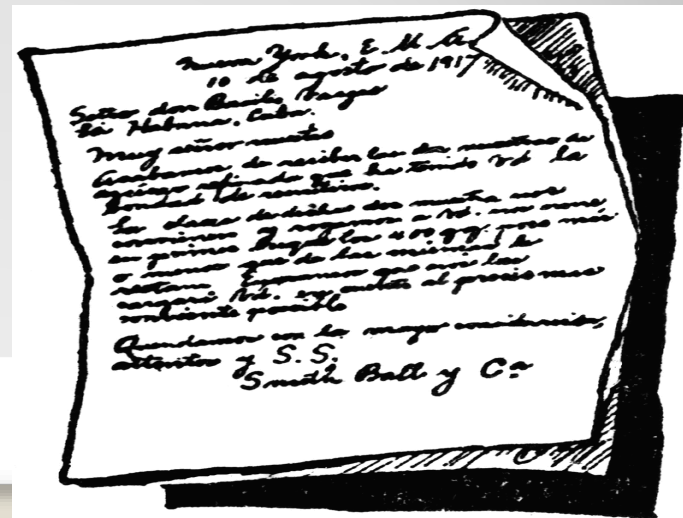 Nueva York, E. U. A.
10 de agosto de 1917
Señor don Basilio Vargas
La Habana, Cuba.
Muy señor nuestro
Acabamos de recibir las dos muestras de
azúcar refinado que ha tenido Vd la
bondad de remitirnos.
La clase de dichas dos muestras nos
conviene y rogamos a Vd. nos envíe
en primer buque los 400 qq. poco más
o menos que de las mismas le
restan. Esperamos que nos las
cargará Vd. en cuenta al precio mas
conveniente posible
Quedamos con la mayor consideración,
atentos y S. S.
Smith Ball y Cª